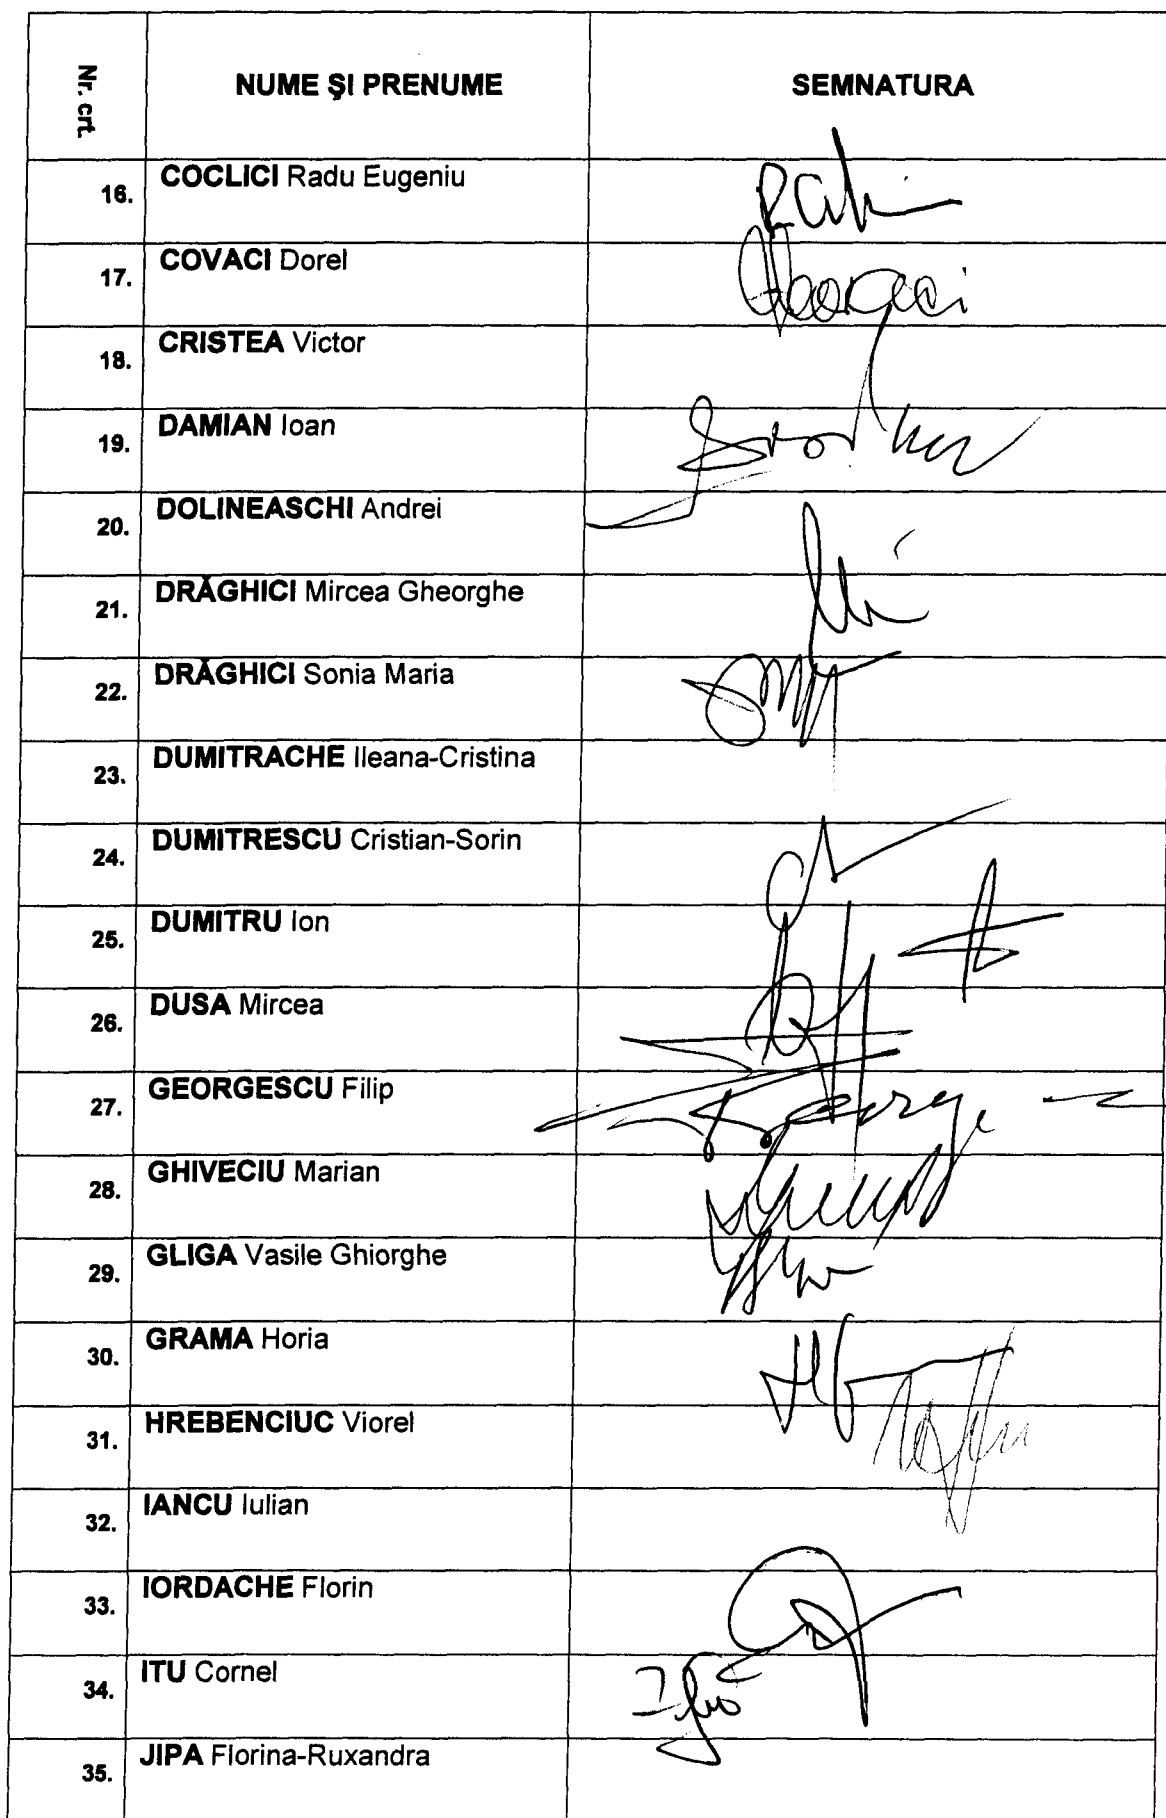 Nr. crt. NUME ŞI PRENUME SEMNATURA
16. COCLICI Radu Eugeniu
17. COVACI Dorel
18. CRISTEA Victor
19. DAMIAN Ioan
20. DOLINEASCHI Andrei
21. DRĂGHICI Mircea Gheorghe
22. DRĂGHICI Sonia Maria
23. DUMITRACHE Ileana-Cristina
24. DUMITRESCU Cristian-Sorin
25. DUMITRU Ion
26. DUSA Mircea
27. GEORGESCU Filip
28. GHIVECIU Marian
29. GLIGA Vasile Ghiorghe
30. GRAMA Horia
31. HREBENCIUC Viorel
32. IANCU Iulian
33. IORDACHE Florin
34. ITU Cornel
35. JIPA Florina-Ruxandra